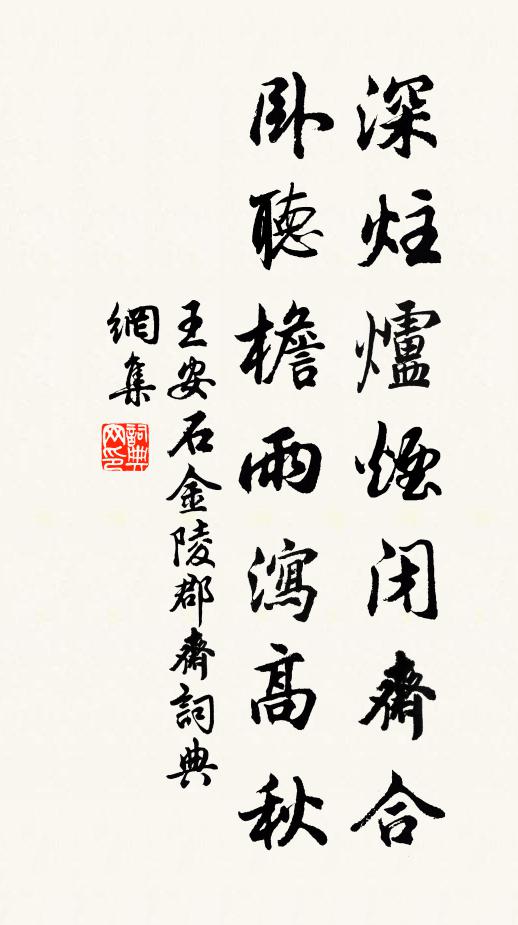 深炷爐煙閉齋合
卧聽檐雨瀉高秋
王安石金陵郡齋詞典
網集
詞典網印